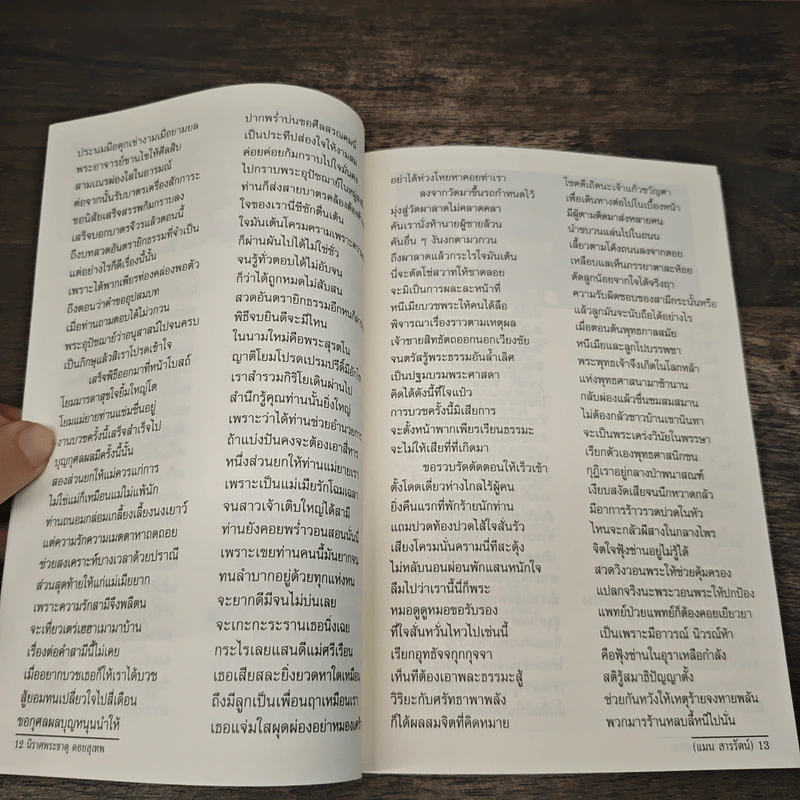 ประนมมือคุกเข่างามเมื่อยามยล
พระอาจารย์ขานไขให้ศีลสิบ
สามเณรผ่องใสในอารมณ์
ต่อจากนั้นรับบาตรเครื่องสักการะ
ขอนิสัยเสร็จสรรพก้มกราบลง
เสร็จบอกบาตรจีวรแล้วตอนนี้
ถึงบทสวดอันตรายิกธรรมที่จำเป็น
แต่อย่างไรก็ดีเรื่องนี้นั้น
เพราะได้พากเพียรท่องคล่องพอตัว
ถึงตอนว่าคำขออุปสมบท
เมื่อท่านถามตอบได้ไม่วกวน
พระอุปัชฌาย์ว่าอนุสาสน์ไปจนครบ
เป็นภิกษุแล้วสิเราโปรดเข้าใจ
เสร็จพิธีออกมาที่หน้าโบสถ์
โยมมารดาสุขใจยิ้มใหญ่โต
โยมแม่ยายท่านแช่มชื่นอยู่
งานบวชครั้งนี้เสร็จสำเร็จไป
บุญกุศลผลมีครั้งนี้นั้น
สองส่วนยกให้แม่ควรแก่การ
ไม่ใช่แม่ก็เหมือนแม่ไม่แพ้นัก
ท่านถนอมกล่อมเกลี้ยงเลี้ยงนงเยาว์
แต่ความรักความเมตตาหาถดถอย
ช่วยสงเคราะห์บางเวลาด้วยปรานี
ส่วนสุดท้ายให้แก่แม่เมียยาก
เพราะความรักสามีจึงพลีตน
จะเที่ยวเตร่เฮฮาเมามาบ้าน
เรื่องต่อคำสามีนี้ไม่เคย
เมื่ออยากบวชเธอก็ให้เราได้บวช
สู้ยอมทนเปลี่ยวใจไปสี่เดือน
ขอกุศลผลบุญหนุนนำให้
12 นิราศพระธาตุ ดอยสุเทพ
ปากพร่ำบ่นขอศีลสรณคมน์
เป็นประทีปส่องใจให้งามสม
ค่อยค่อยก้มกราบไปใจมั่นคง
ไปกราบพระอุปัชฌาย์ในหมู่สงฆ์
ท่านก็ส่งสายบาตรคล้องต้อง
ใจของเรานี่ซิชักตื่นเต้น
ใจมันเต้นโครมครามเพราะความ
ก็ผ่านผันไปได้ไม่ใช่ชั่ว
จนรู้ทั่วตอบได้ไม่อับจน
ก็ว่าได้ถูกหมดไม่สับสน
สวดอันตรายิกธรรมอีกหน
พิธีจบยินดีจะมีไหน
ในนามใหม่คือพระสุรดโน
ญาติโยมโปรดเปรมปรีดิ์มี
เราสำรวมกิริโยเดินผ่านไป
สำนึกรู้คุณท่านนั้นยิ่งใหญ่
เพราะว่าได้ท่านช่วยอำนวยการ
ถ้าแบ่งปันคงจะต้องเอาสี่หาร
หนึ่งส่วนยกให้ท่านแม่ยายเรา
เพราะเป็นแม่เมียรักโฉมเฉลา
จนสาวเจ้าเติบใหญ่ได้สามี
ท่านยังคอยพร่ำวอนสอนนั่นนี่
เพราะเขยท่านคนนี้มันยากจน
ทนลำบากอยู่ด้วยทุกแห่งหน
จะยากดีมีจนไม่บ่นเลย
จะเกะกะระรานเธอนิ่งเฉย
กระไรเลยแสนดีแม่ศรีเรือน
เธอเสียสละยิ่งยวดหาใดเหมือน
ถึงมีลูกเป็นเพื่อนฤาเหมือนเรา
เธอแจ่มใสผุดผ่องอย่าหมอง
อย่าได้ห่วงโหยหาคอยท่าเรา
ลงจากวัดมาขึ้นรถกำหนดไว้
มุ่งสู่วัดผาลาดไม่คลาดคลา
คันเรานั่งท้านายผู้ชายล้วน
คันอื่น ๆ งันงกตามวกวน
ถึงผาลาดแล้วกระไรใจมันเต้น
นี่จะตัดโซ่สวาทให้ขาดลอย
จะมิเป็นการผละละหน้าที่
หนีเมียบวชพระให้คนได้ลือ
พิจารณาเรื่องราวตามเหตุผล
เจ้าชายสิทธัตถออกนอกเวียงชัย
จนตรัสรู้พระธรรมอันล้ำเลิศ
เป็นปฐมบรมพระศาสดา
คิดได้ดังนี้ก็ใจแป้ว
การบวชครั้งนี้มิเสียการ
จะตั้งหน้าพากเพียรเรียนธรรมะ
จะไม่ให้เสียที่ที่เกิดมา
ขอรวบรัดตัดตอนให้เร็วเข้า
ตั้งโดดเดี่ยวห่างไกลไร้ผู้คน
ยิ่งคืนแรกที่พักร้ายนักท่าน
แถมปวดท้องปวดไส้ใจสั่นรัว
เสียงโครมนั่นครามนี่ที่สะดุ้ง
ไม่หลับนอนผ่อนพักแสนหนักใจ
ลืมไปว่าเรานี้นี่ก็พระ
หมอดูดูหมอขอรับรอง
ที่ใจสั่นหวั่นไหวไปเช่นนี้
เรียกอุทธัจจกุกกุจจา
เห็นทีต้องเอาพละธรรมะสู้
วิริยะกับศรัทธาพาพลัง
ก็ได้ผลสมจิตที่คิดหมาย
โชคดีเถิดนะเจ้าแก้วขวัญตา
เพื่อเดินทางต่อไปในเบื้องหน้า
มีผู้ตามติดมาส่งหลายคน
นำขบวนแล่นไปในถนน
เลี้ยวตามโค้งถนนลงจากดอย
เหลือบแลเห็นภรรยาตาละห้อย
ตัดลูกน้อยจากใจได้จริงฤา
ความรับผิดชอบของสามีกระนั้นหรือ
แล้วลูกมันจะนับถือได้อย่างไร
เมื่อตอนต้นพุทธกาลสมัย
หนีเมียและลูกไปบรรพชา
พระพุทธเจ้าจึงเกิดในโลกหล้า
แห่งพุทธศาสนามาช้านาน
กลับผ่องแผ้วชื่นชมสมสมาน
ไม่ต้องกลัวชาวบ้านเขานินทา
จะเป็นพระเคร่งวินัยในพรรษา
เรียกตัวเองพุทธศาสนิกชน
กุฏิเราอยู่กลางป่าพนาสณฑ์
เงียบสงัดเสียจนนึกหวาดกลัว
มีอาการร้าวรวดปวดในหัว
ไหนจะกลัวผีสางในกลางไพร
จิตใจฟุ้งซ่านอยู่ไม่รู้ได้
สวดวิงวอนพระให้ช่วยคุ้มครอง
แปลกจริงนะพระวอนพระให้ปกป้อง
แพทย์ป่วยแพทย์ก็ต้องคอยเยียวยา
เป็นเพราะมีอาวรณ์ นิวรณ์ห้า
คือฟุ้งซ่านในอุราเหลือกำลัง
สติรู้สมาธิปัญญาตั้ง
ช่วยกันหวังให้เหตุร้ายจงหายพลัน
พวกมารร้านหลบลี้หนีไปนั่น
(แมน สารรัตน์) 13